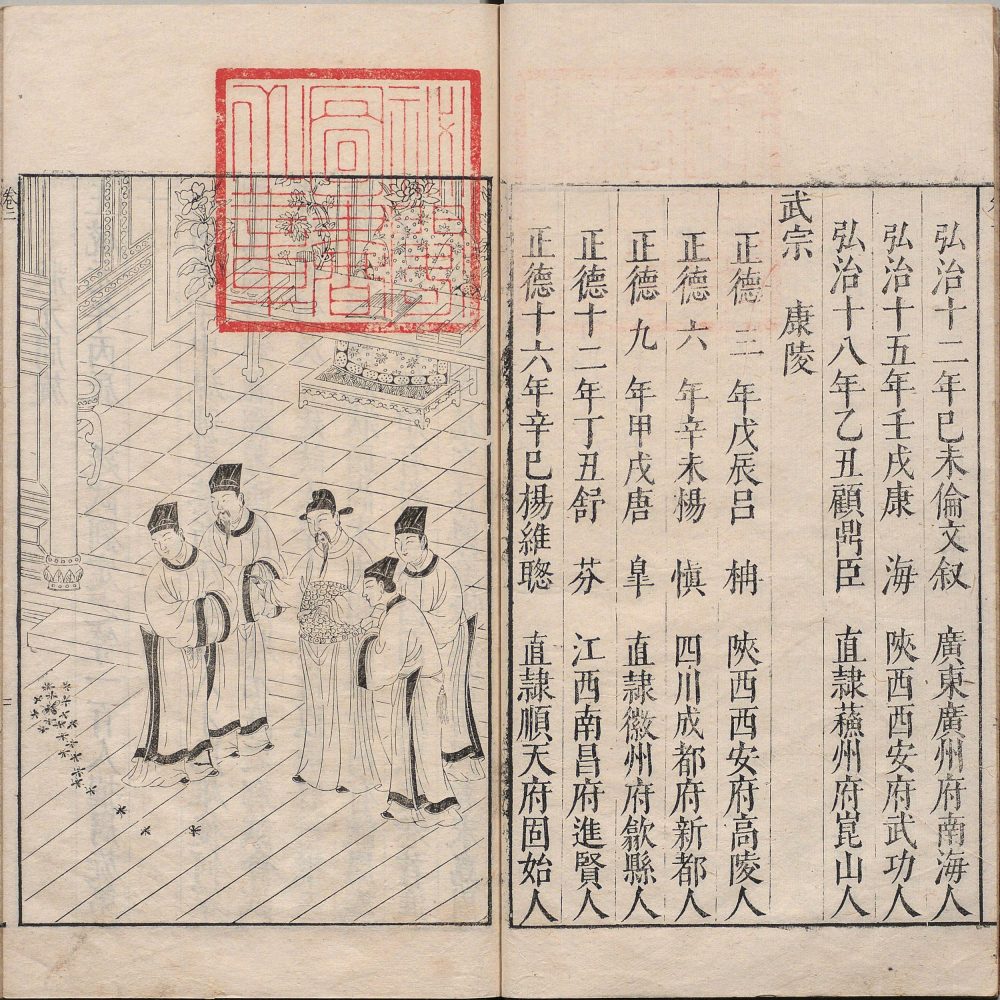 弘治十二年巳未倫文叙 廣東廣州府南海人
弘治十五年壬戌康 海 陝西西安府武功人
弘治十八年乙丑顧鼎臣 直隸蘓州府崑山人
武宗 康陵
正德三年戊辰呂 柟 陝西西安府高陵人
正德六年辛未楊 慎 四川成都府新都人
正德九年甲戌唐 皐 直隸徽州府歙縣人
正德十二年丁丑舒 芬 江西南昌府進賢人
正德十六年辛巳楊維聦 直隸順天府固始人
卷二